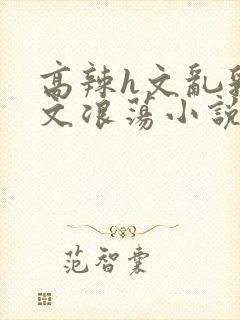 高辣h文亂
文浪蕩小說
范智囊